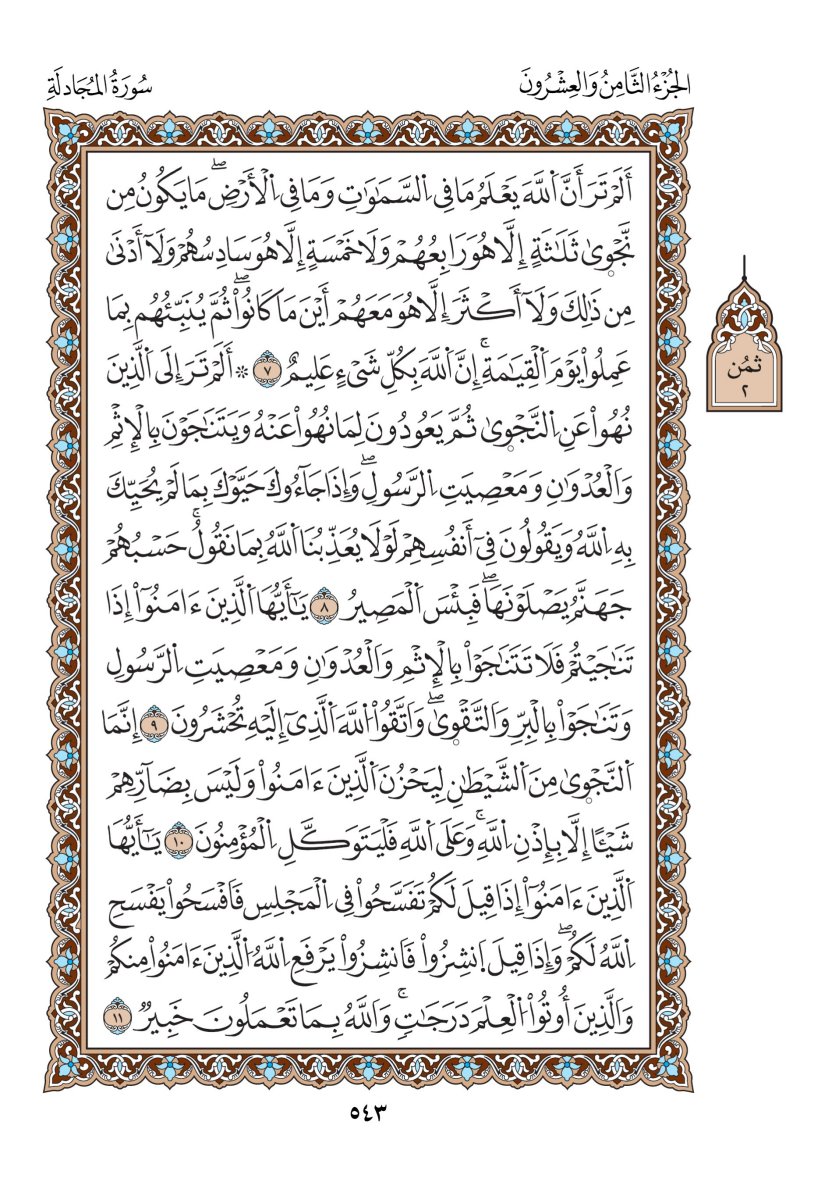 الجُزْءُ الثَّامِنُ وَالعِشْرُونَ
سُورَةُ المُجَادلَةِ
أَلَمْ تَرَ أَنَّ اَ۬للَّهَ يَعْلَمُ مَا فِي اِ۬لسَّمَٰوَٰتِ وَمَا فِي اِ۬لْأَرْضِۖ مَا يَكُونُ مِن
نَّجْو۪ىٰ ثَلَٰثَةٍ إِلَّا هُوَ رَابِعُهُمْ وَلَا خَمْسَةٍ إِلَّا هُوَ سَادِسُهُمْ وَلَآ أَدْنَىٰ
مِن ذَٰلِكَ وَلَآ أَكْثَرَ إِلَّا هُوَ مَعَهُمْ أَيْنَ مَا كَانُواْۖ ثُمَّ يُنَبِّئُهُم بِمَا
عَمِلُواْ يَوْمَ اَ۬لْقِيَٰمَةِۚ إِنَّ اَ۬للَّهَ بِكُلِّ شَيْءٍ عَلِيمٌ ٧ ۞ أَلَمْ تَرَ إِلَى اَ۬لَّذِينَ
نُهُواْ عَنِ اِ۬لنَّجْو۪ىٰ ثُمَّ يَعُودُونَ لِمَا نُهُواْ عَنْهُ وَيَتَنَٰجَوْنَ بِالْإِثْمِ
وَالْعُدْوَٰنِ وَمَعْصِيَتِ اِ۬لرَّسُولِۖ وَإِذَا جَآءُوكَ حَيَّوْكَ بِمَا لَمْ يُحَيِّكَ
بِهِ اِ۬للَّهُ وَيَقُولُونَ فِيٓ أَنفُسِهِمْ لَوْلَا يُعَذِّبُنَا اَ۬للَّهُ بِمَا نَقُولُۚ حَسْبُهُمْ
جَهَنَّمُ يَصْلَوْنَهَاۖ فَبِئْسَ اَ۬لْمَصِيرُ ٨ يَٰٓأَيُّهَا اَ۬لَّذِينَ ءَامَنُوٓاْ إِذَا
تَنَٰجَيْتُمْ فَلَا تَتَنَٰجَوْاْ بِالْإِثْمِ وَالْعُدْوَٰنِ وَمَعْصِيَتِ اِ۬لرَّسُولِ
وَتَنَٰجَوْاْ بِالْبِرِّ وَالتَّقْو۪ىٰۖ وَاتَّقُواْ اُ۬للَّهَ اَ۬لَّذِيٓ إِلَيْهِ تُحْشَرُونَ ٩ إِنَّمَا
اَ۬لنَّجْو۪ىٰ مِنَ اَ۬لشَّيْطَٰنِ لِيَحْزُنَ اَ۬لَّذِينَ ءَامَنُواْ وَلَيْسَ بِضَآرِّهِمْ
شَيْـًٔا إِلَّا بِإِذْنِ اِ۬للَّهِۚ وَعَلَى اَ۬للَّهِ فَلْيَتَوَكَّلِ اِ۬لْمُؤْمِنُونَ ١٠ يَٰٓأَيُّهَا
اَ۬لَّذِينَ ءَامَنُوٓاْ إِذَا قِيلَ لَكُمْ تَفَسَّحُواْ فِي اِ۬لْمَجْلِسِ فَافْسَحُواْ يَفْسَحِ
اِ۬للَّهُ لَكُمْۖ وَإِذَا قِيلَ اَ۪نشِزُواْ فَانشِزُواْ يَرْفَعِ اِ۬للَّهُ اُ۬لَّذِينَ ءَامَنُواْ مِنكُمْ
وَالَّذِينَ أُوتُواْ اُ۬لْعِلْمَ دَرَجَٰتٍۚ وَاللَّهُ بِمَا تَعْمَلُونَ خَبِيرٌ ١١
ثمُن
٢
٥٤٣